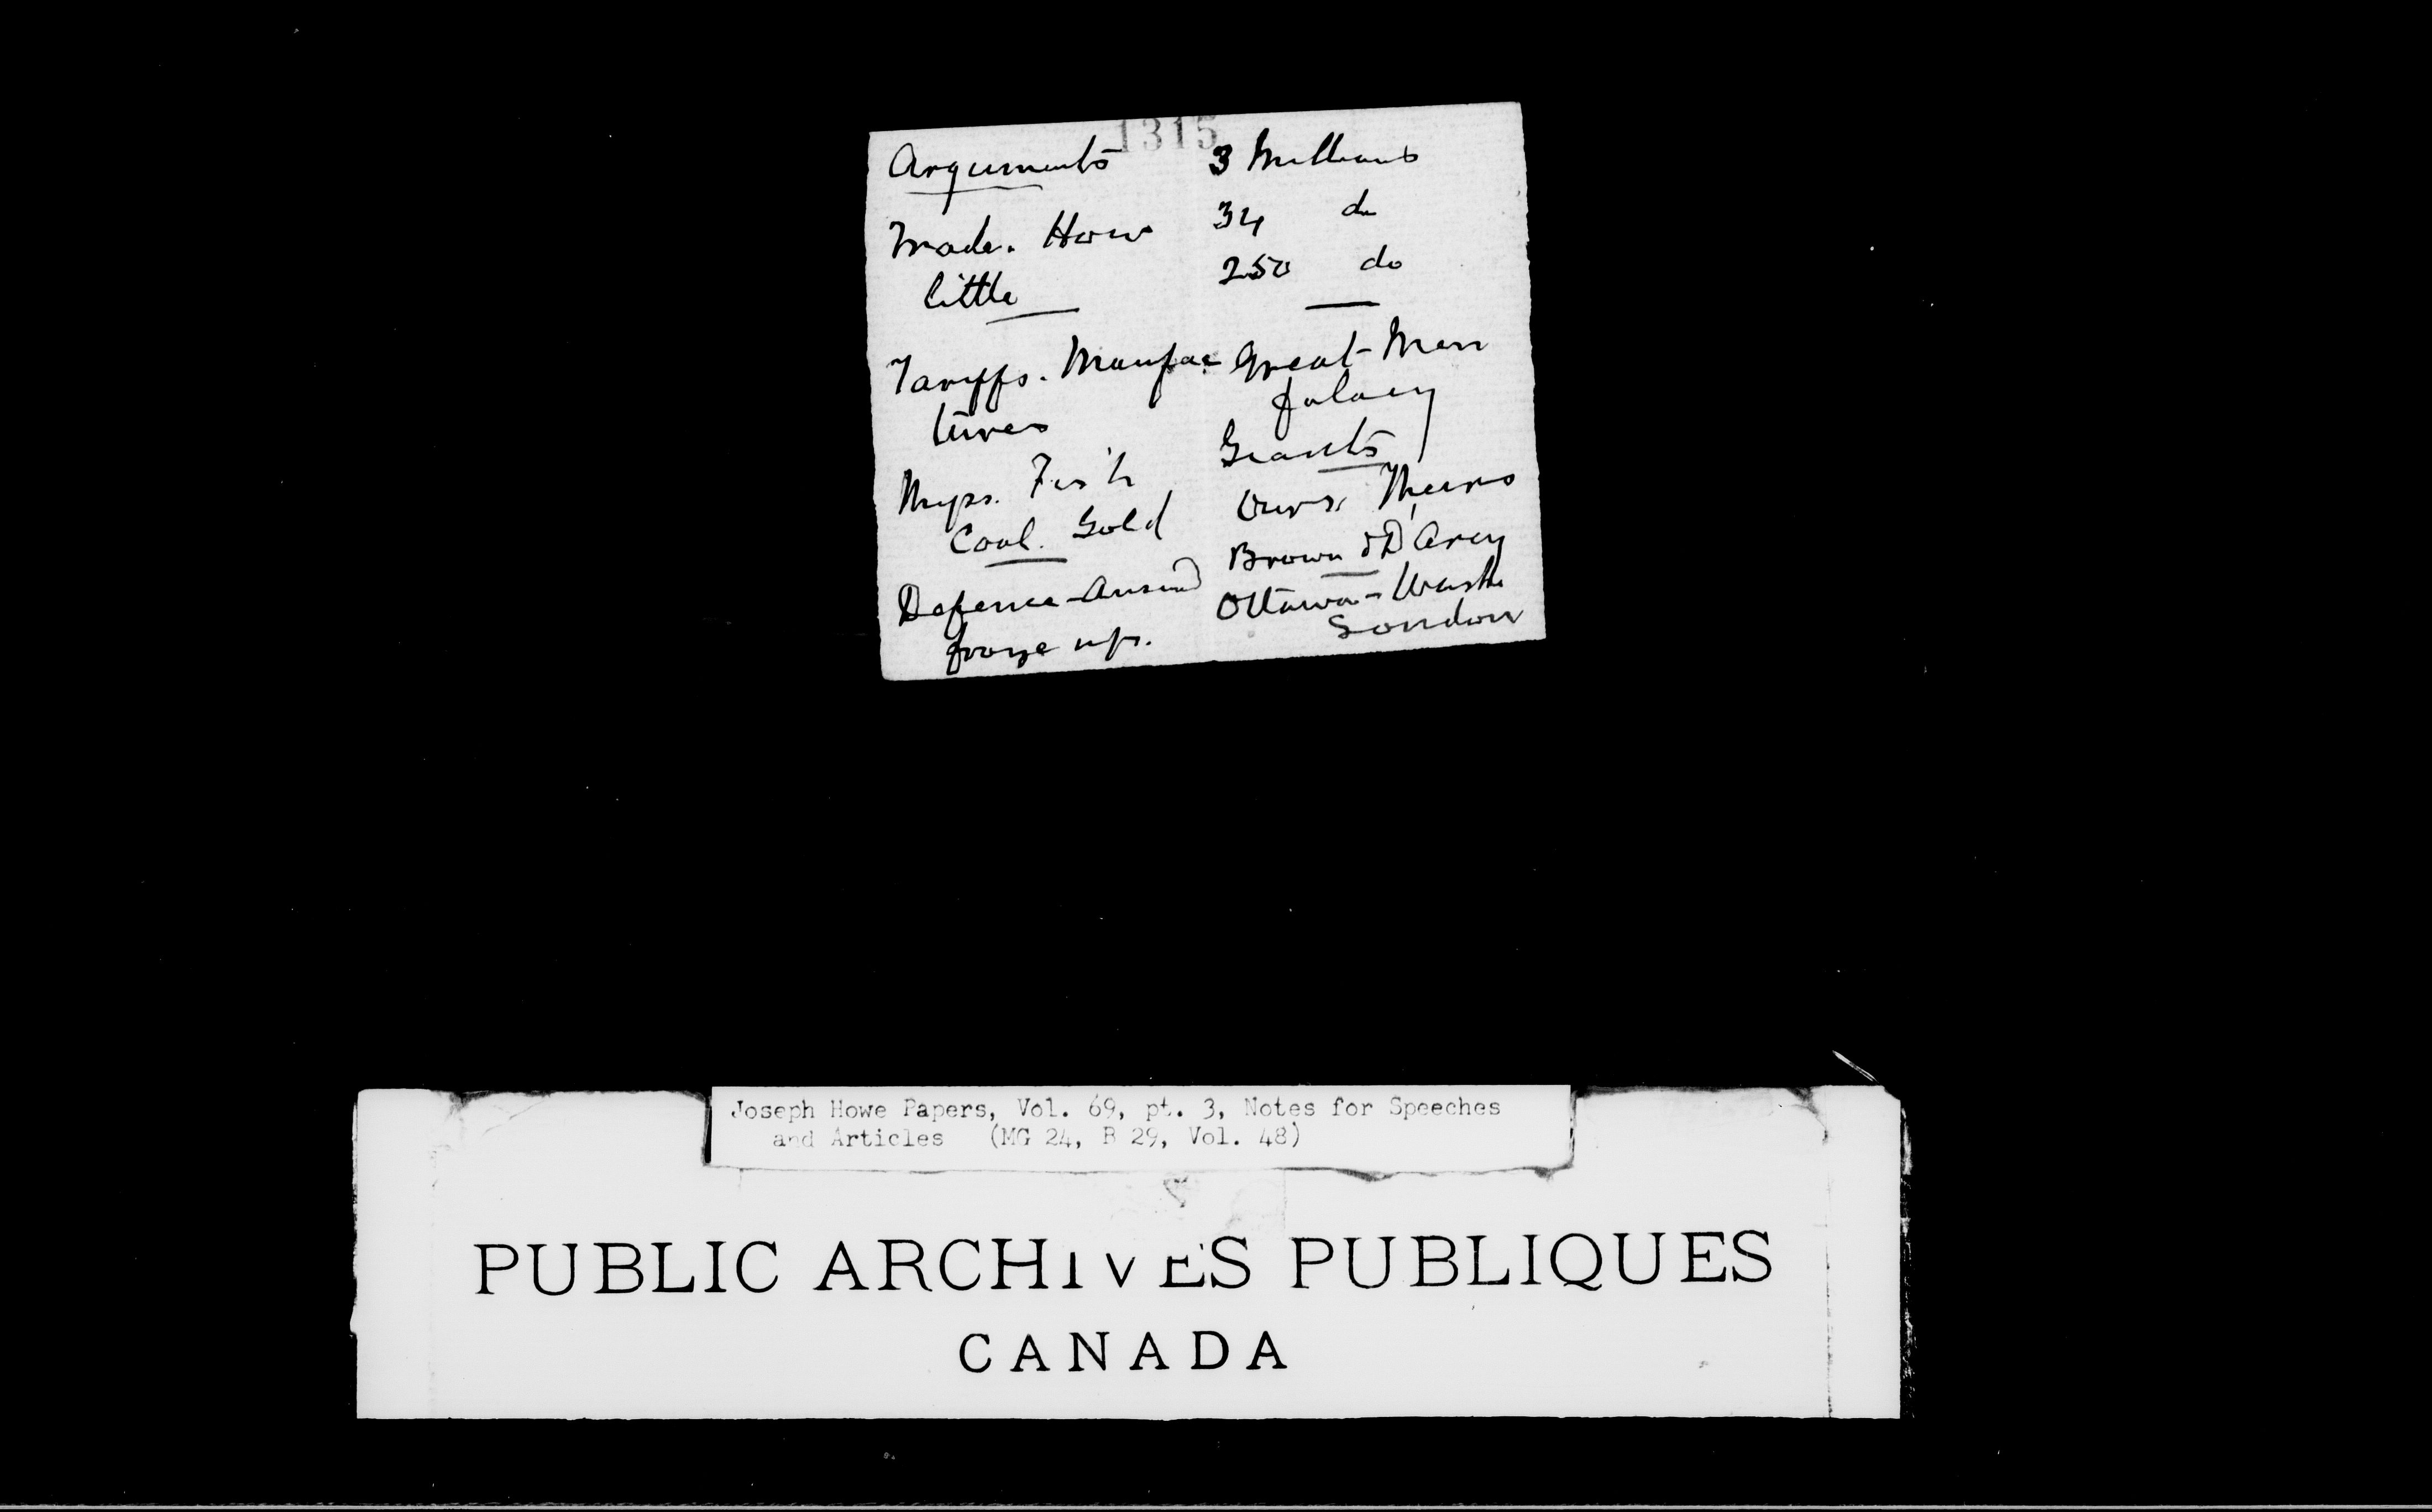 1315
Arguments
Trade. How
little
Tariffs. Manufac
tures
Fish
Coal. Gold
Defence
froze up.
3 Millions
34 do
250 do
Great Men
falacy
Giants
Ours. Theirs
Brown & D'Arcy
Ottawa - Wash
London
Joseph Howe Papers, Vol. 69, pt. 3, Notes for Speeches
and Articles (MG 24, B 29, Vol. 48)
PUBLIC ARCHIVES PUBLIQUES
CANADA